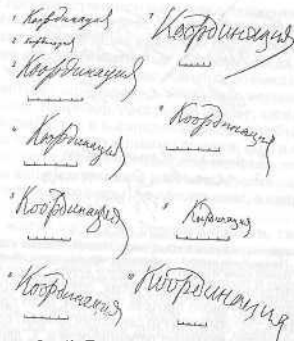 1 Координация
2 Координация
3 Координация
4 Координация
5 Координация
6 Координация
7 Координация
Координация
9 Координация
10 Координация